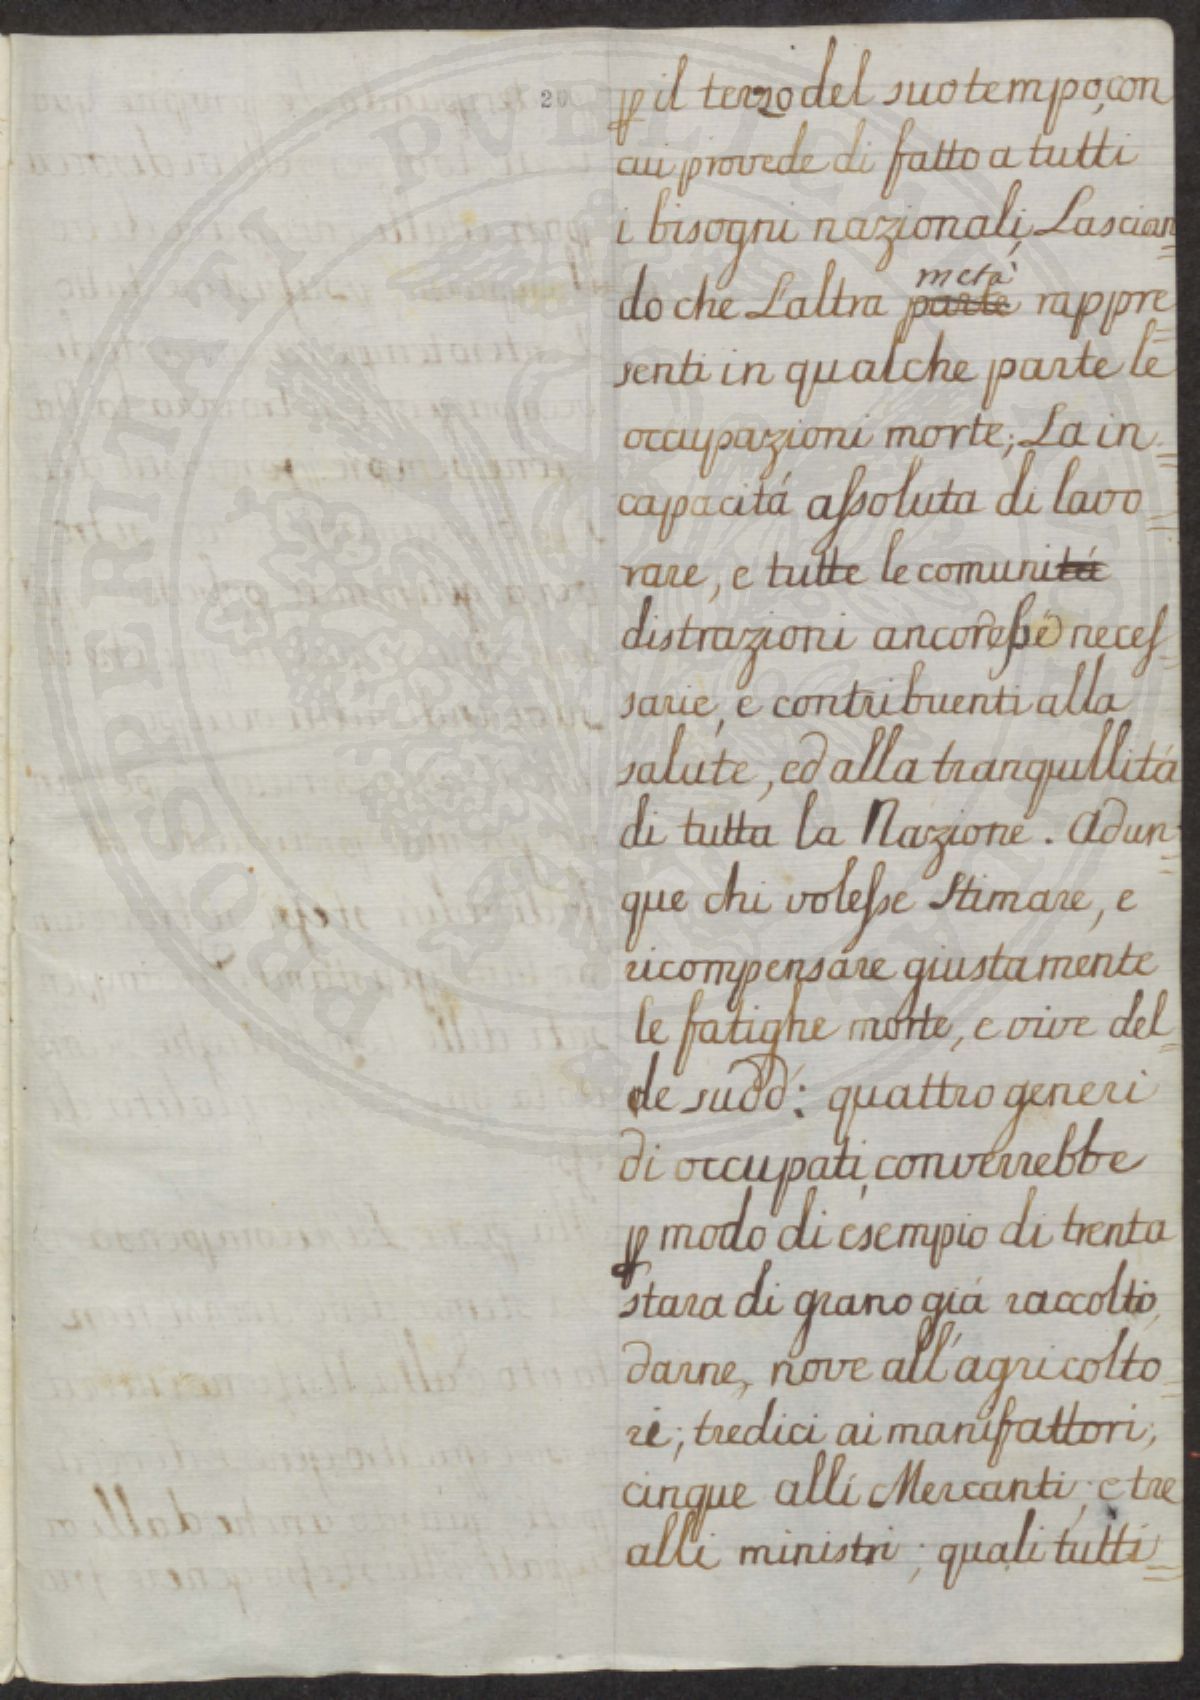 20
ꝑ il terzo del suo tempo, con
cui provede di fatto a tutti
i bisogni nazionali, Lascian=
metà
do che L'altra parte rappre=
senti in qualche parte le
occupazioni morte; La in=
capacitá assoluta di lavo=
rare, e tutte le comunitá
distrazioni ancorché neces=
sarie, e contribuenti alla
salute, ed alla tranqullitá
di tutta la Nazione. Adun=
que chi volesse Stimare, e
ricompensare giustamente
le fatighe morte, e vive del=
le sudd: quattro generi
di occupati, converrebbe
ꝑ modo di esempio di trenta
stara di grano giá raccolto,
darne, nove all'agricolto=
ri; tredici ai manifattori;
cinque alli Mercanti; e tre
alli ministri; quali tutti=
PROSPERITATI PVBLICAE